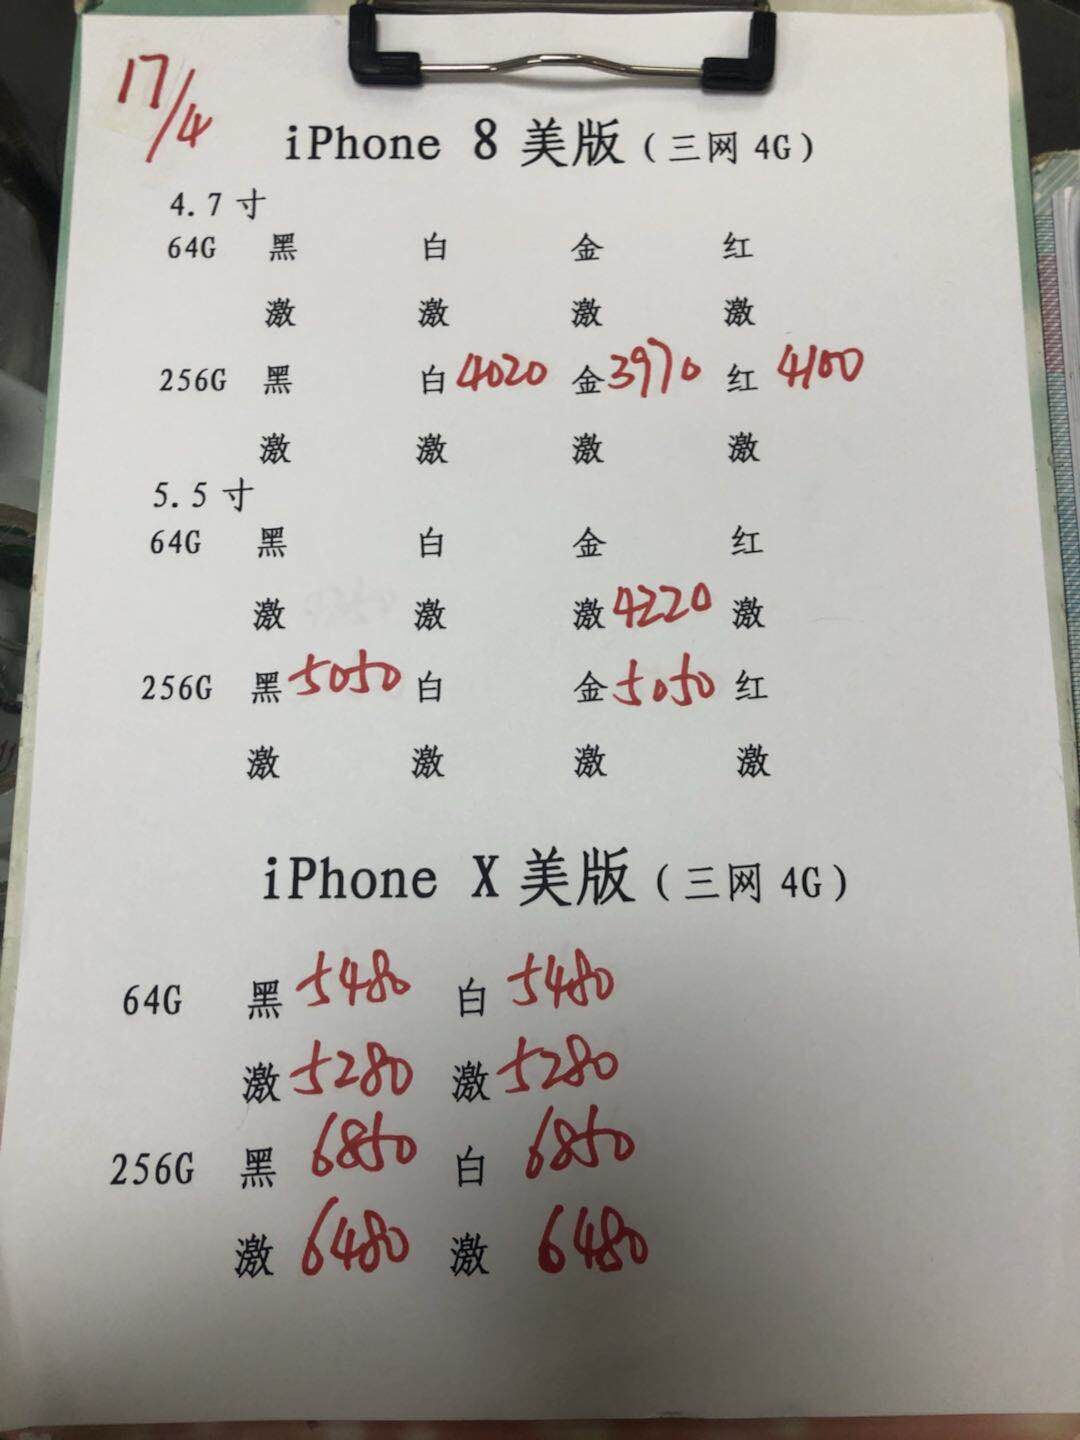 17/4
iPhone 8 美版（三网 4G）
4.7 寸
64G 黑 白 金 红
激 激 激 激
256G 黑 白 4020 金 3970 红 4100
激 激 激 激
5.5 寸
64G 黑 白 金 红
激 激 激 4220 激
256G 黑 5050 白 金 5050 红
激 激 激 激
iPhone X 美版（三网 4G）
64G 黑 5480 白 5480
激 5280 激 5280
256G 黑 6850 白 6850
激 6480 激 6480